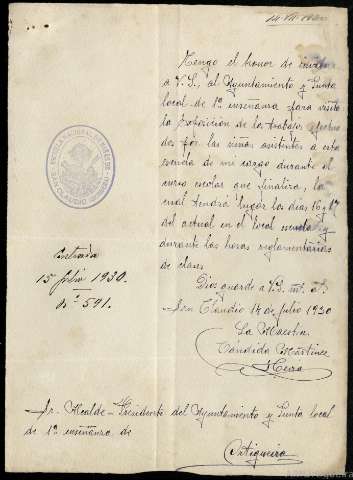 14-VII-1930
Tengo el honor de invitar
a V.S., al Ayuntamiento y Junta
local de 1ª enseñanza para visitar
la Exposición de los trabajos efectua
dos por las niñas asistentes a esta
escuela de mi cargo durante el
curso escolar que finaliza, la
cual tendrá lugar los días 16 y 17
del actual en el local escuela y
durante las horas reglamentarias
de clases
Dios guarde a V.S. m. a.
San Claudio 14 de Julio 1930
La Maestra
Cándida Martínez
ESCUELA NACIONAL DE NIÑAS DE
SAN CLAUDIO
Entrada
15 Julio 1930.
Nº 591.
Sr. Alcalde-Presidente del Ayuntamiento y Junta local
de 1ª enseñanza de
Ortigueira